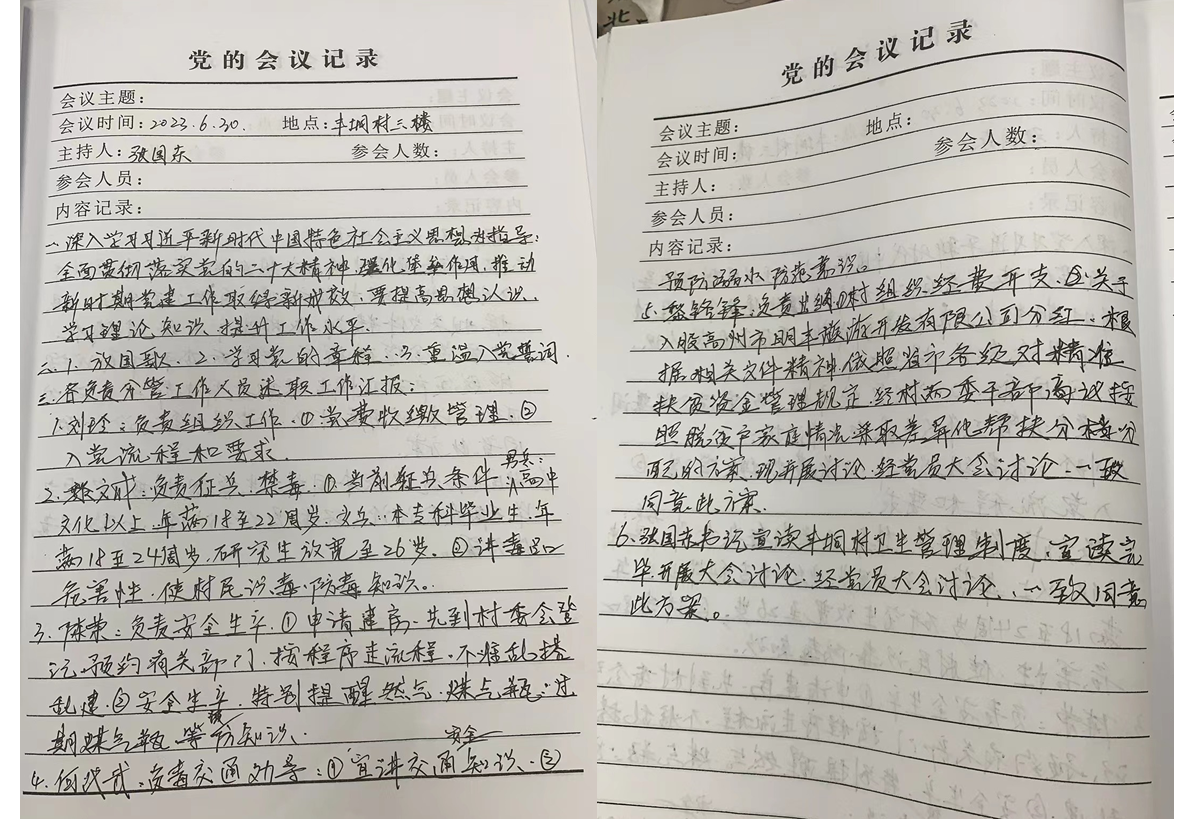 党的会议记录
会议主题：
会议时间：2023.6.30. 地点：丰垌村三楼
主持人：张国东 参会人数：
参会人员：
内容记录：
一、深入学习习近平新时代中国特色社会主义思想为指导，
全面贯彻落实党的二十大精神，强化堡垒作用，推动
新时期党建工作取得新成效，要提高思想认识、
学习理论知识、提升工作水平。
二、1. 放国歌、2. 学习党的章程、3. 重温入党誓词.
三、各负责分管工作人员述职工作汇报：
1. 刘玲：负责组织工作，①党费收缴管理，②
入党流程和要求。
2. 文成：负责征兵、禁毒，①当前征兵条件男兵：高中
文化以上，年满18至22周岁，女兵：本专科毕业生，年
满18至24周岁，研究生放宽至26岁。②讲毒品
危害性，使村民识毒、防毒知识。
3. 陈荣：负责安全生产，①申请建房，先到村委会登
记，预约有关部门，按程序走流程，不准乱搭
乱建，②安全生产，特别提醒燃气、煤气瓶，过
期煤气瓶等预防知识、
4. 何成武：负责交通劝导：①宣讲交通安全知识，②
党的会议记录
会议主题：
会议时间： 地点：
主持人： 参会人数：
参会人员：
内容记录：
预防溺水防范意识。
5. 黎铭锋：负责出纳，①村组织经费开支，②关于
入股高州市明丰旅游开发有限公司分红，根
据相关文件精神，依照省市各级对精准
扶贫资金管理规定，经村两委干部商议按
照脱贫户家庭情况采取差异化帮扶分档分
配的方案，现开展讨论，经党员大会讨论，一致
同意此方案。
6. 张国东书记宣读丰垌村卫生管理制度，宣读完
毕，开展大会讨论，经党员大会讨论，一致同意
此方案。